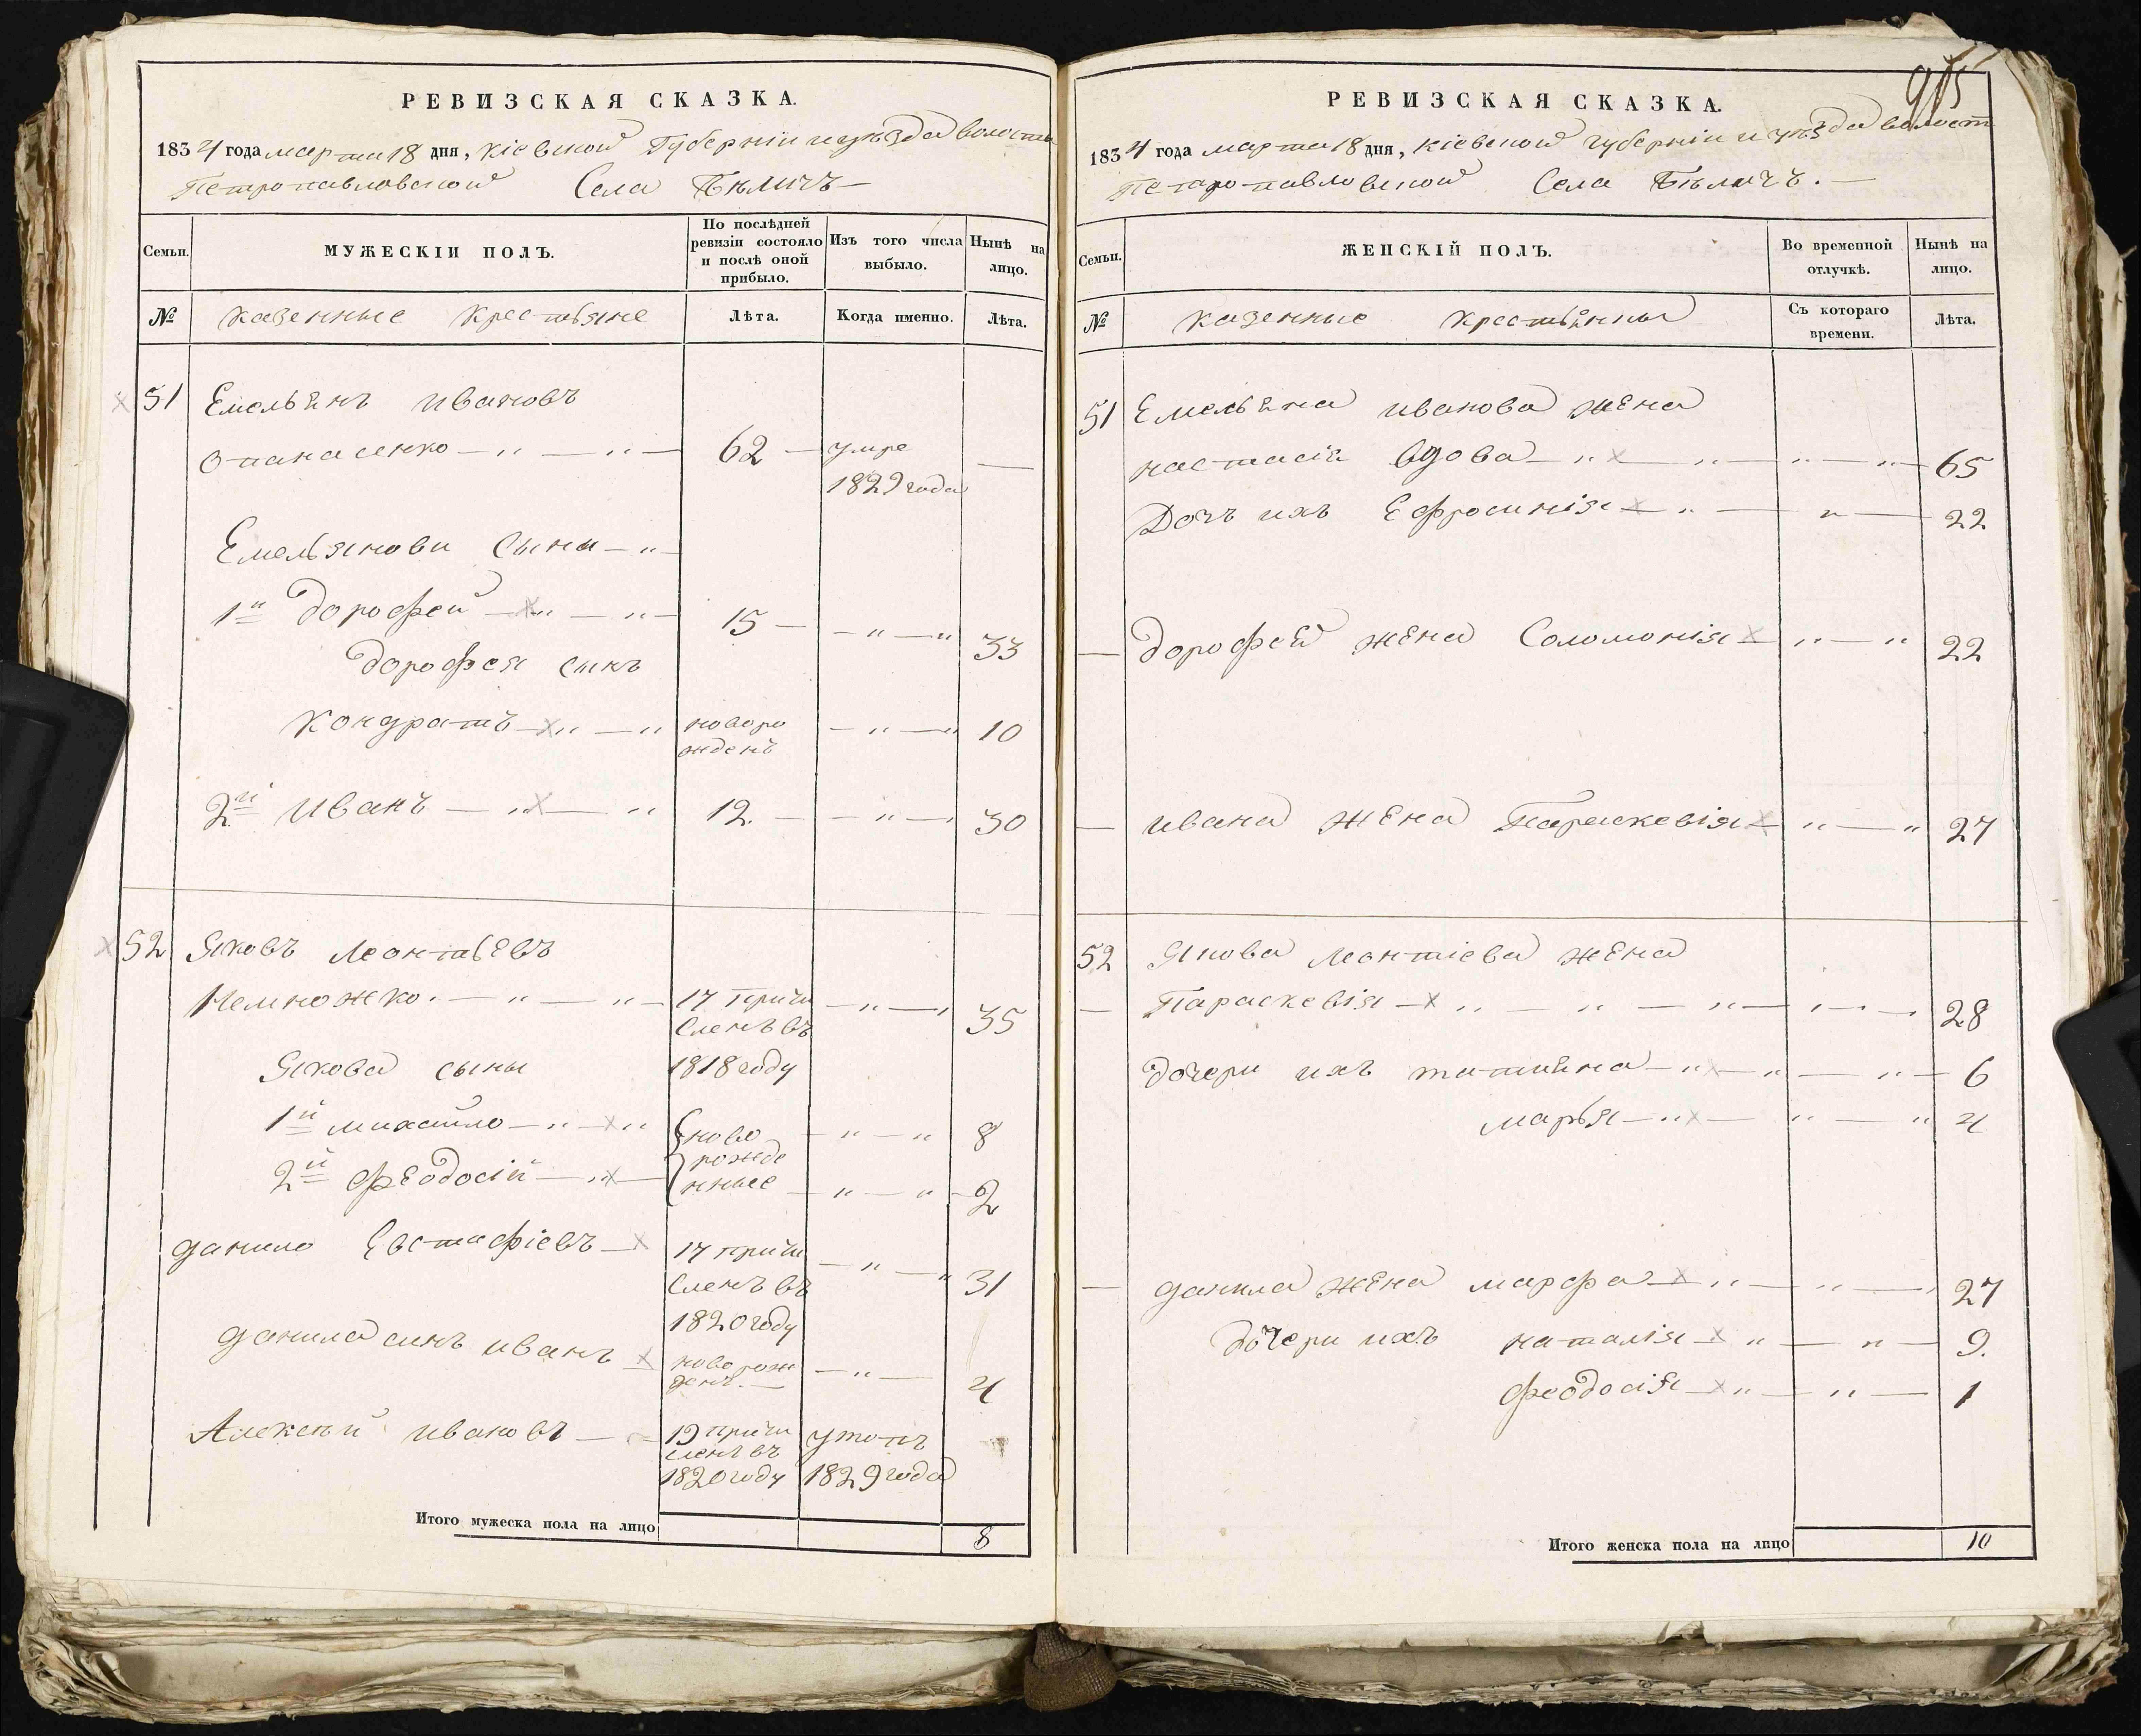 РЕВИЗСКАЯ СКАЗКА.
1834 года марта 18 дня, Кіевской Губерніи и уѣзда волости
Петропавловской Села Бѣличъ —
Семьи. МУЖЕСКІЙ ПОЛЪ. По послѣдней ревизіи состояло и послѣ оной прибыло. Изъ того числа выбыло. Нынѣ на лицо.
№ Казенные Крестьяне Лѣта. Когда именно. Лѣта.
51 Емельянъ Ивановъ
Опанасенко — " — " — 62 — умре —
1829 года
Емельянови Сыни — " —
1й Дорофей — " — " — 15 — — " — " 33
Дорофея сынъ
Кондратъ — " — " новоро — " — " 10
жденъ
2й Иванъ — " — " 12. — — " — 30
52 Яковъ Леонтьевъ
Немножко. — " — " — 17 причи — " — 35
сленъ въ
Якова сыны 1818 году
1й михайло — " — " ново — " — " 8
рожде
2й Феодосій — " — нные — " — " — 2
Данило Евстафіевъ — 17 причи — " — " 31
сленъ въ
1820 году
Данила синъ Иванъ новорож — " — 4
денъ. —
Алексѣй Ивановъ — 19 причи утопъ
сленъ въ
1820 году 1829 года
Итого мужеска пола на лицо 8
915
РЕВИЗСКАЯ СКАЗКА.
1834 года марта 18 дня, Кіевской Губерніи и уѣзда волост
Петропавловской Села Бѣличъ. —
Семьи. ЖЕНСКІЙ ПОЛЪ. Во временной отлучкѣ. Нынѣ на лицо.
№ Казенные Крестьянки Съ котораго времени. Лѣта.
51 Емельяна Иванова жена
настасія вдова — " — " — " — " — 65
Дочъ ихъ Ефросинія — " — " — 22
— Дорофей жена Соломонія — " — " 22
— Ивана жена Параскевія — " — " 27
52 Якова Леонтіева жена
— Параскевія — " — " — " — " — 28
Дочери ихъ татияна — " — " — " — 6
марья — " — " — " 4
— Данила жена марфа — " — " — 27
Дочери ихъ наталія — " — " — 9.
феодосія — " — " — 1
Итого женска пола на лицо 10